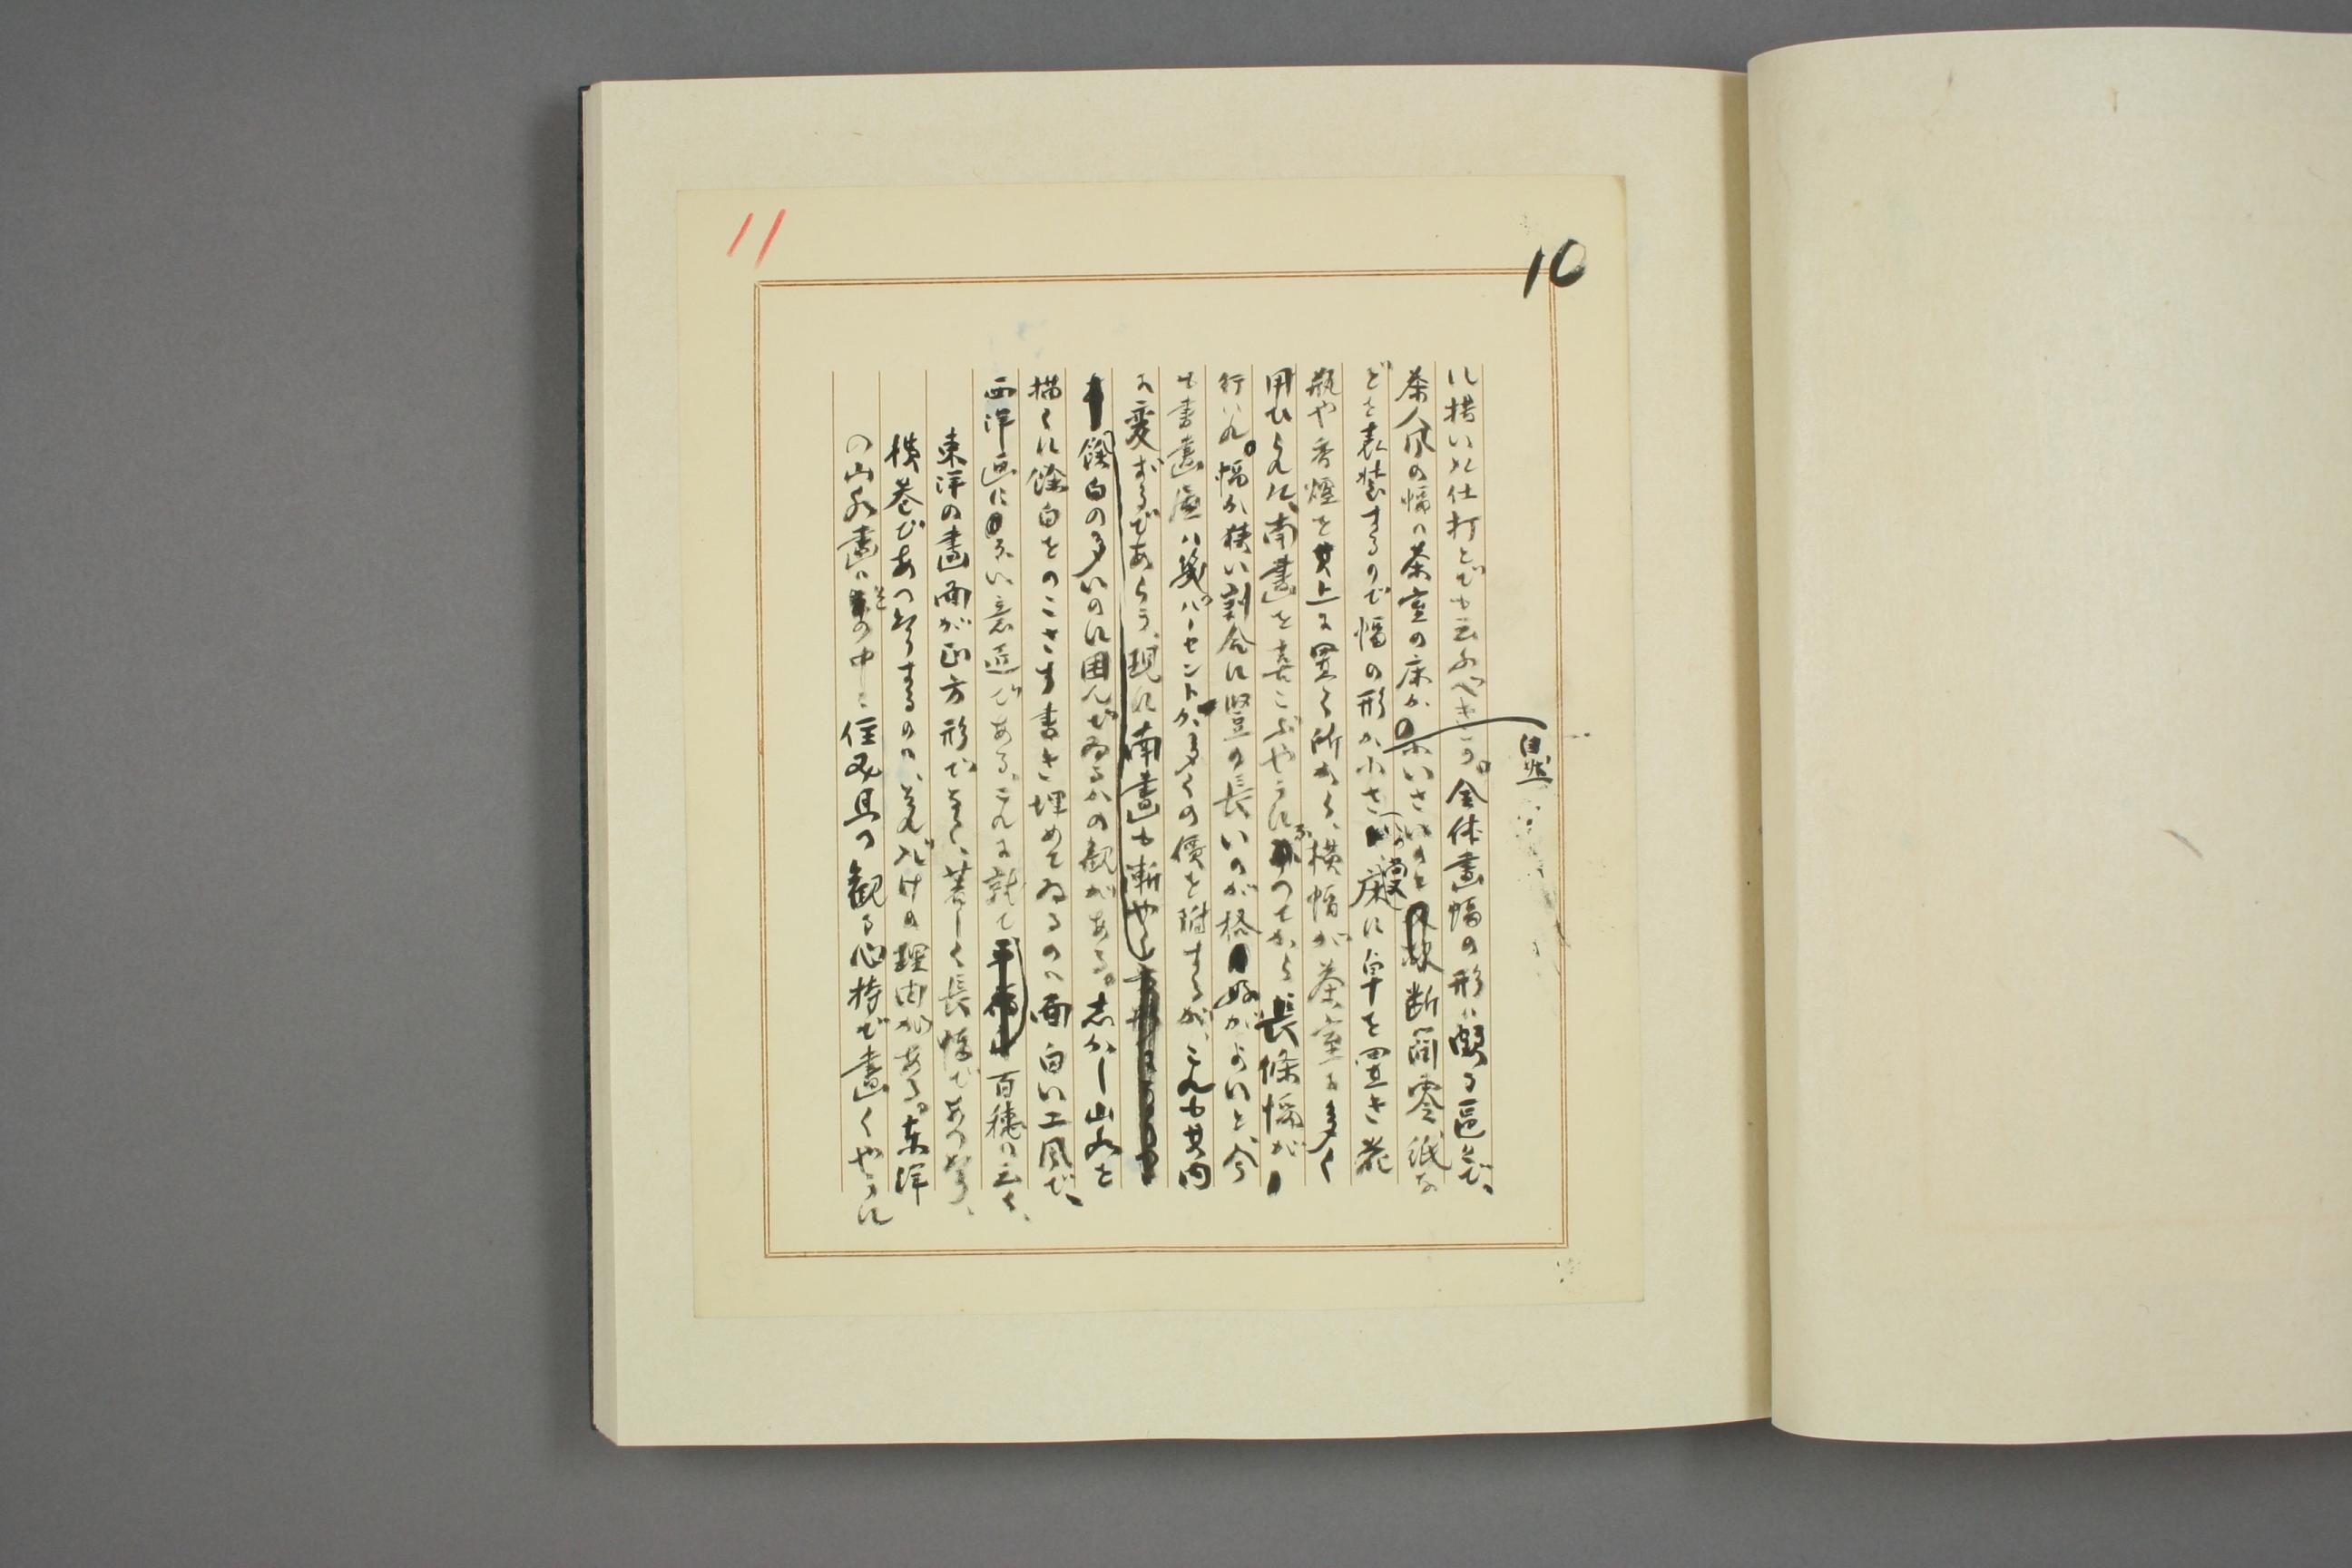 10
11
に描いた仕打とでも云ふべきか。全体畫幅の形は頗る区々で、
茶人風の幅は茶室の床が小さいのと断簡零紙な
自然
どを表装するので幅の形が小さく、床に卓を置き花
瓶や香爐を其上に置く所から、横幅が茶室に多く
用ひられ、南畫を喜こぶやうになつてから長條幅が
行はれ。幅が狭い割合に竪の長いのが格好がよいと今
も書畫屋は幾パーセントか多くの價を附するが、これも其内
に変ずるであらう。現に南畫も漸やく
餘白の多いのに困んでゐるかの観がある。志かし山水を
描くに餘白をのこさす書き埋めてゐるのは面白い工風で、
西洋画にない意匠である。これに就て百穂は云く、
東洋の畫面が正方形でなく、著しく長幅であつたり、
横巻であつたりするのは、それだけの理由がある。東洋
の山水畫は其の中に住み且つ観る心持で畫くやうに